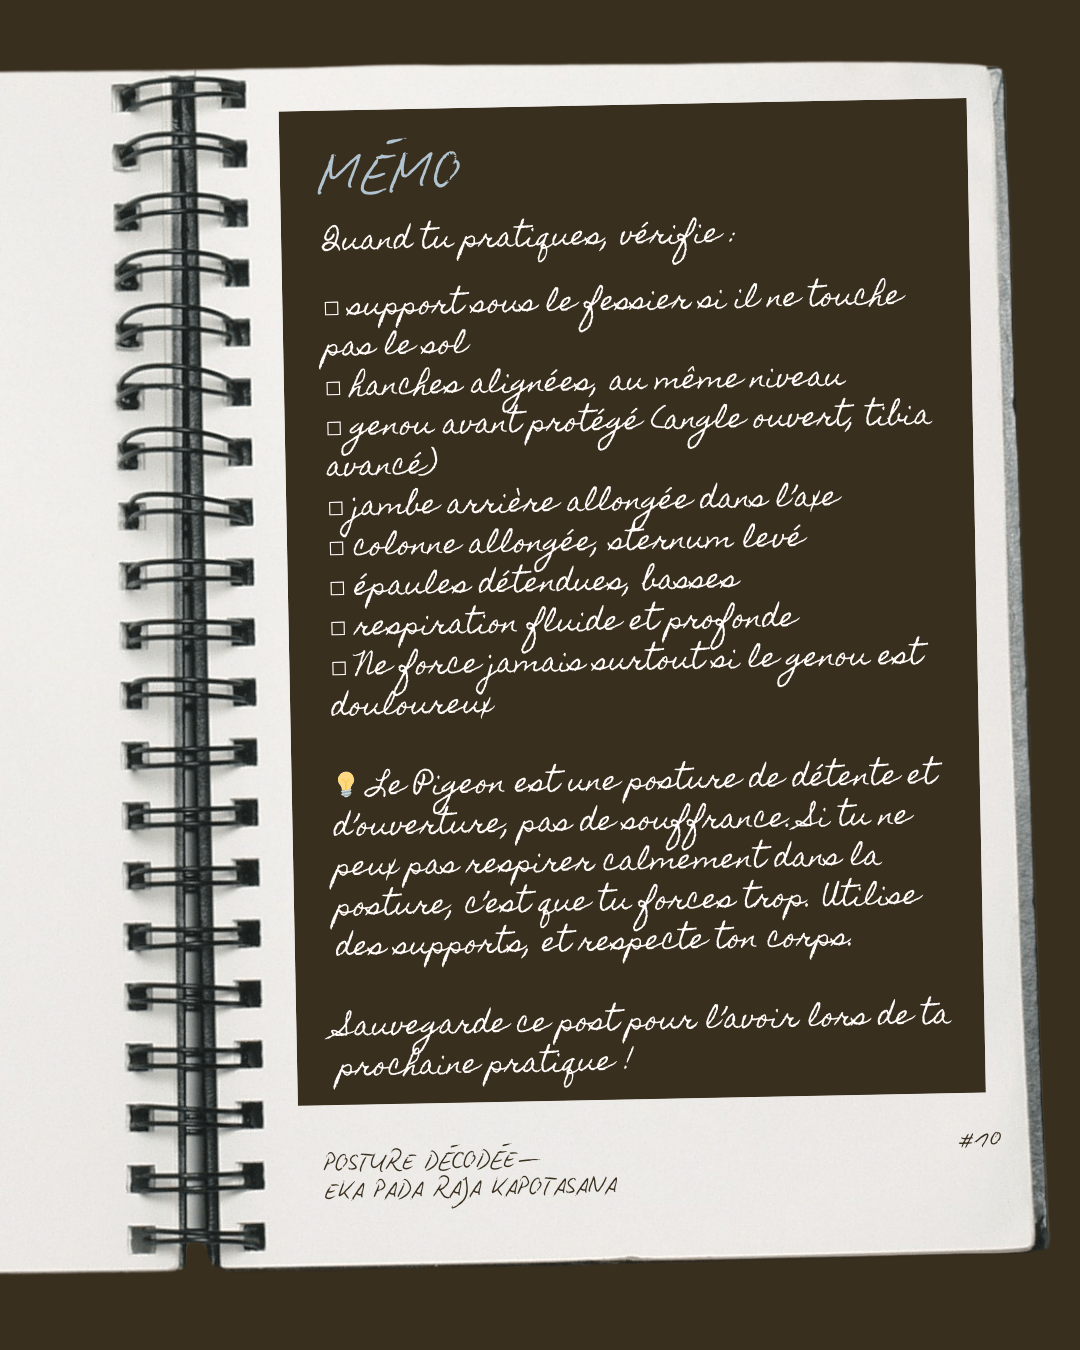 MÉMO
Quand tu pratiques, vérifie :
□ support sous le fessier si il ne touche
pas le sol
□ hanches alignées, au même niveau
□ genou avant protégé (angle ouvert, tibia
avancé)
□ jambe arrière allongée dans l'axe
□ colonne allongée, sternum levé
□ épaules détendues, basses
□ respiration fluide et profonde
□ Ne force jamais surtout si le genou est
douloureux
💡 Le Pigeon est une posture de détente et
d'ouverture, pas de souffrance. Si tu ne
peux pas respirer calmement dans la
posture, c'est que tu forces trop. Utilise
des supports, et respecte ton corps.
Sauvegarde ce post pour l'avoir lors de ta
prochaine pratique !
#10
POSTURE DÉCODÉE—
EKA PADA RAJA KAPOTASANA